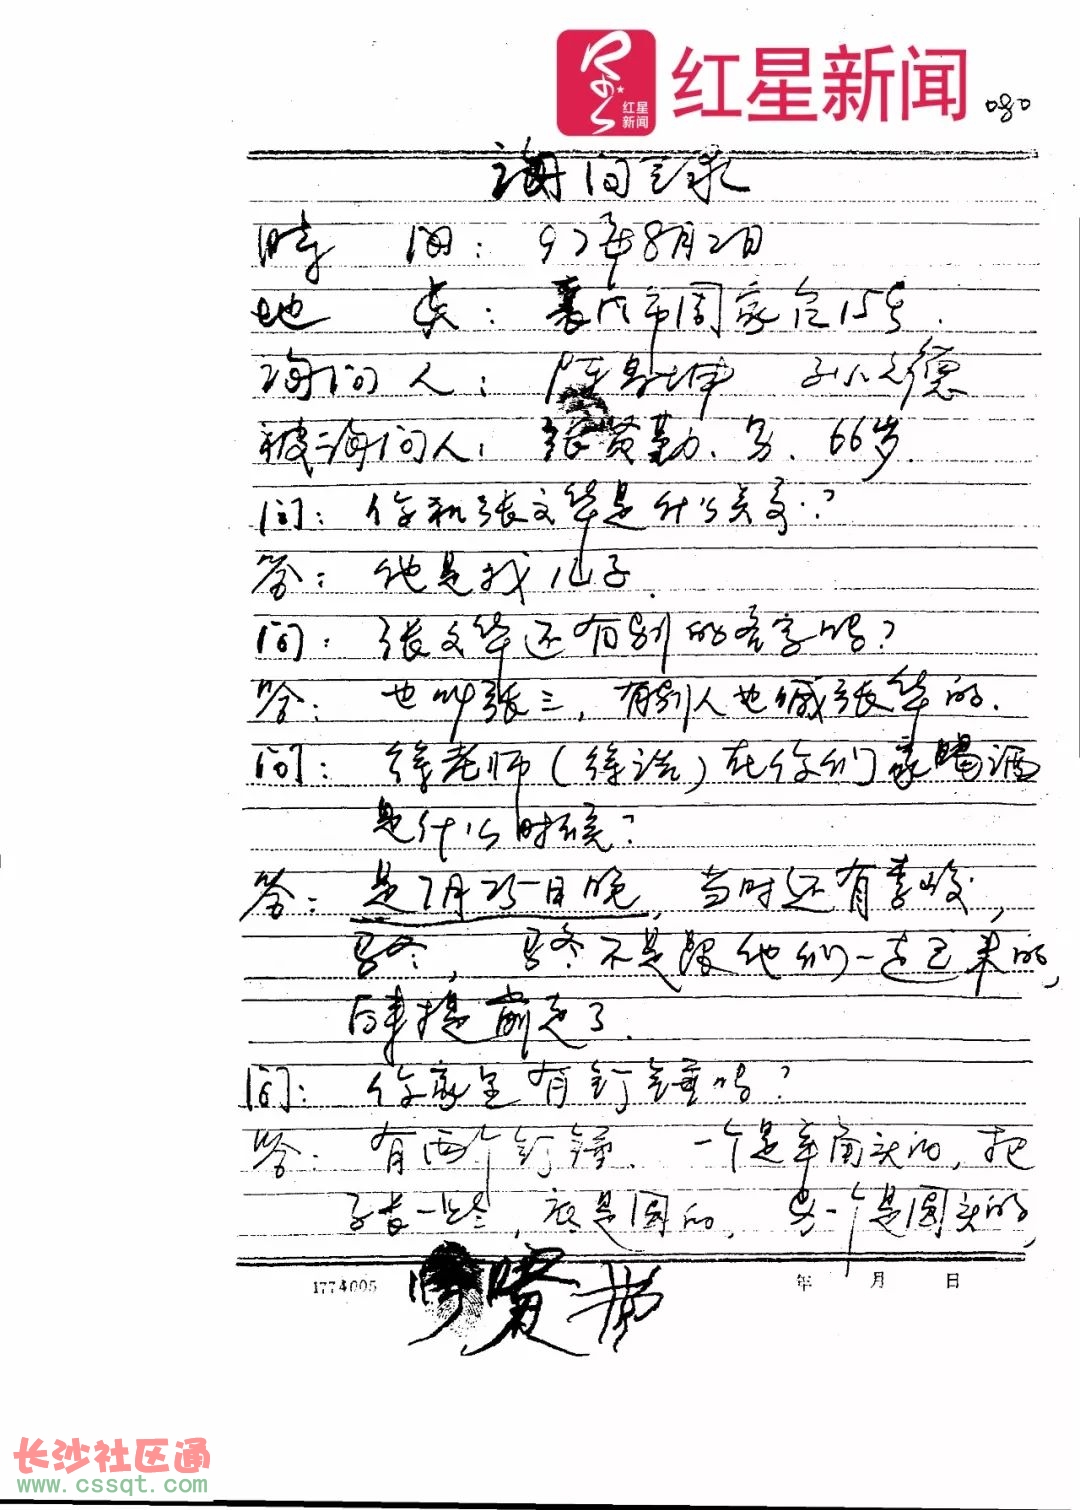 红星新闻
红星
新闻
080
询问笔录
时 间: 97年8月2日
地 点: 襄阳市周家台15号.
询问人: 陈 坤 孙 德
被询问人: 张贤勤、男、66岁.
问: 你和张文华是什么关系?
答: 他是我儿子.
问: 张文华还有别的名字吗?
答: 也叫张三, 有别人也喊张华的.
问: 徐老师(徐浩)在你们家喝酒
是什么时候?
答: 是7月25日晚, 当时还有李峻,
马冬, 马冬不是跟他们一起来的,
后来提前走了.
问: 你家里有钉锤吗?
答: 有两个钉锤. 一个是羊角头的, 把
子长一些, 底是圆的, 另一个是圆头的,
1774005
年 月 日
长沙社区通
www.cssqt.com